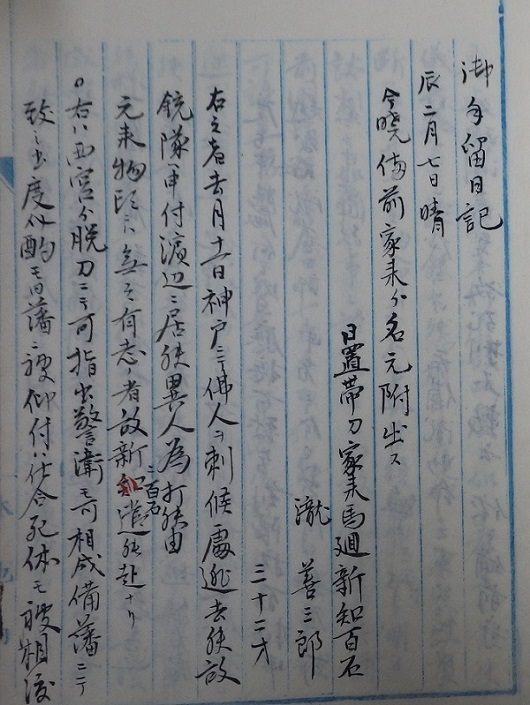 御手留日記
辰二月七日晴
今暁備前家来ゟ名元附出ス
日置帯刀家来馬廻新知百石
瀧善三郎
三十二才
右之者去月十一日神戸ニ而佛人ヲ刺候處逃去候故
銃隊申付濱辺ニ居候異人為打候由
元来物頭ニ無之有志ノ者故新知二百石遣候赴ナリ
○右ハ西宮ゟ脱刀ニ而可指出警衛モ可相成備藩ニテ
致シ出度仕酌モ同藩ニ被仰付ハ仕合死体モ被相渡